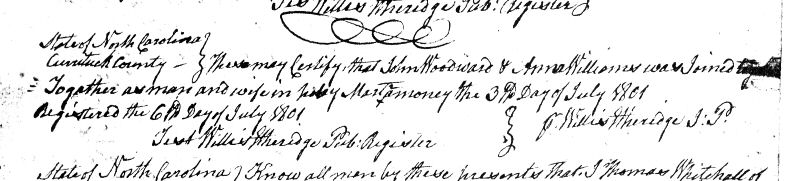 Test Willis Etheridge Pub: Register
State of North Carolina }
Currituck County – } These may Certify, that John Woodward & Anna Williams was Joined
Together as man and wife in holy Mattamoney the 3rd Day of July 1801
Registered the 6th Day of July 1801 } Willis Etheridge J: P.
Test Willis Etheridge Pub: Register
State of North Carolina } Know all men by these presents that I Thomas Whitehall of